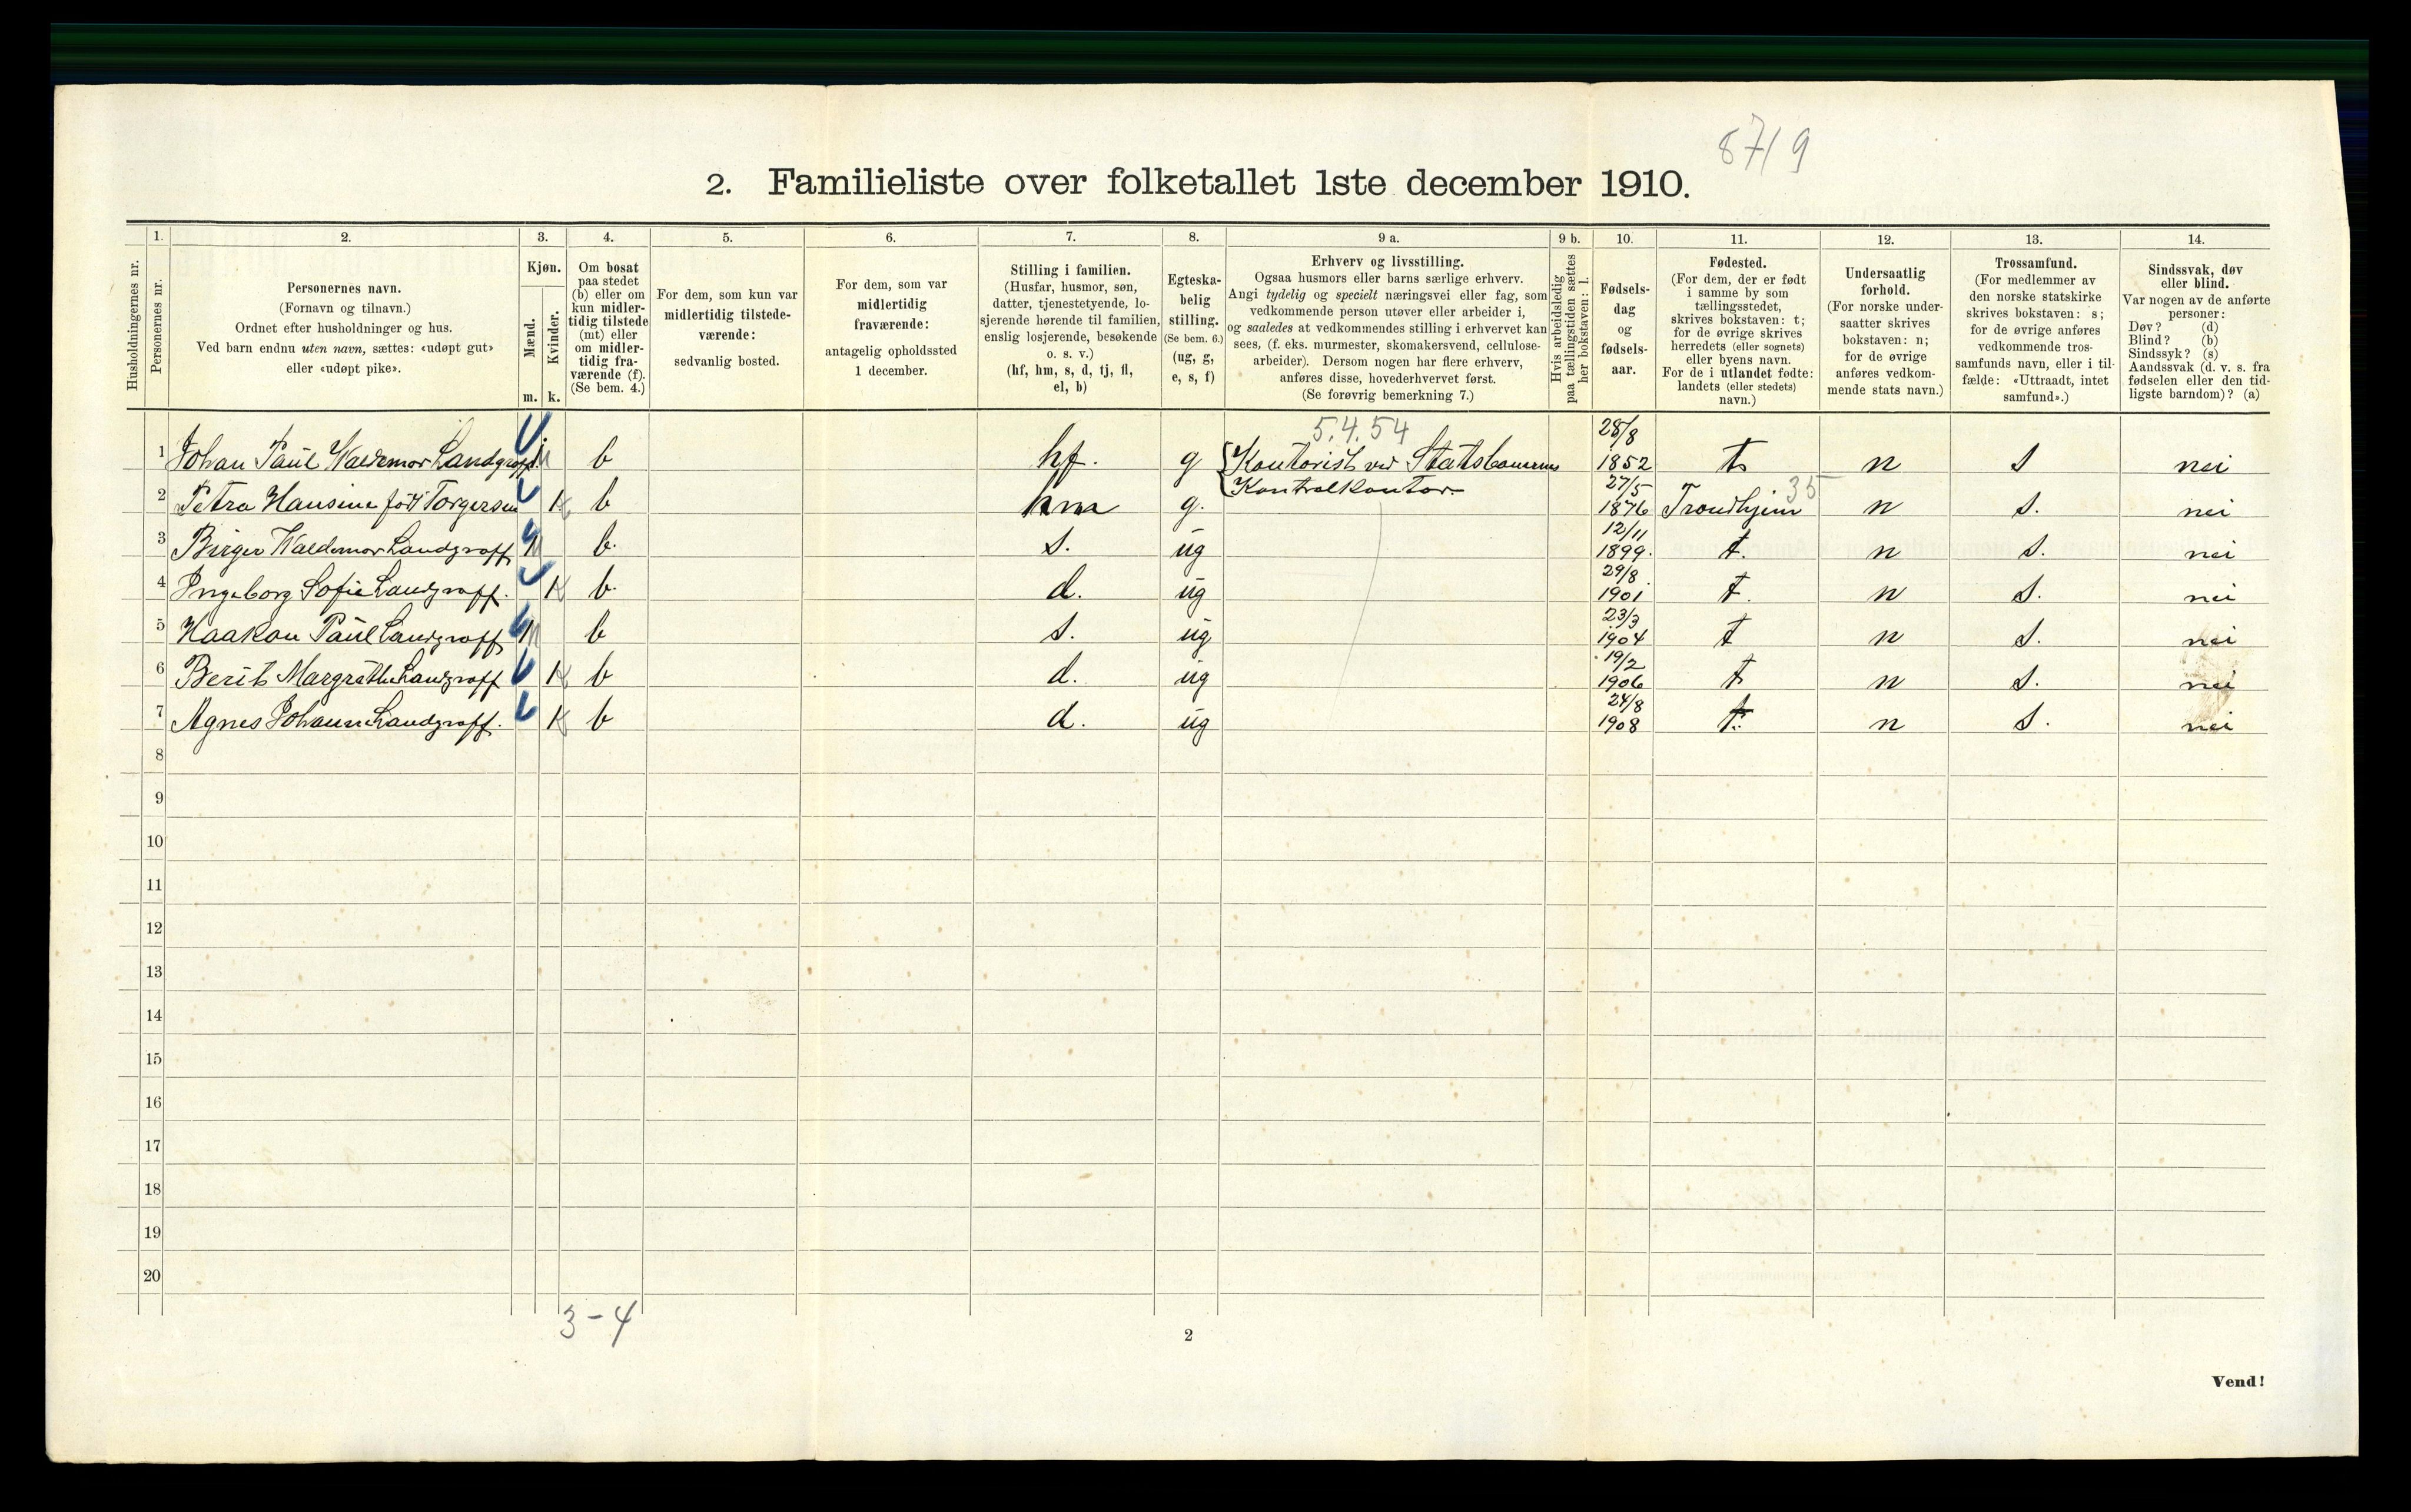 87/9
2. Familieliste over folketallet 1ste december 1910.
1. 2. 3. 4. 5. 6. 7. 8. 9 a. 9 b. 10. 11. 12. 13. 14.
Husholdningernes nr.
Personernes nr.
Personernes navn.
(Fornavn og tilnavn.)
Ordnet efter husholdninger og hus.
Ved barn endnu uten navn, sættes: «udøpt gut»
eller «udøpt pike».
Kjøn.
Mænd.
Kvinder.
m. k.
Om bosat
paa stedet
(b) eller om
kun midler-
tidig tilstede
(mt) eller
om midler-
tidig fra-
værende (f).
(Se bem. 4.)
For dem, som kun var
midlertidig tilstede-
værende:
sedvanlig bosted.
For dem, som var
midlertidig
fraværende:
antagelig opholdssted
1 december.
Stilling i familien.
(Husfar, husmor, søn,
datter, tjenestetyende, lo-
sjerende hørende til familien,
enslig losjerende, besøkende
o. s. v.)
(hf, hm, s, d, tj, fl,
el, b)
Egteska-
belig
stilling.
(Se bem. 6.)
(ug, g,
e, s, f)
Erhverv og livsstilling.
Ogsaa husmors eller barns særlige erhverv.
Angi tydelig og specielt næringsvei eller fag, som
vedkommende person utøver eller arbeider i,
og saaledes at vedkommendes stilling i erhvervet kan
sees, (f. eks. murmester, skomakersvend, cellulose-
arbeider). Dersom nogen har flere erhverv,
anføres disse, hovederhvervet først.
(Se forøvrig bemerkning 7.)
Hvis arbeidsledig
paa tællingstiden sættes
her bokstaven: l.
Fødsels-
dag
og
fødsels-
aar.
Fødested.
(For dem, der er født
i samme by som
tællingsstedet,
skrives bokstaven: t;
for de øvrige skrives
herredets (eller sognets)
eller byens navn.
For de i utlandet fødte:
landets (eller stedets)
navn.)
Undersaatlig
forhold.
(For norske under-
saatter skrives
bokstaven: n;
for de øvrige
anføres vedkom-
mende stats navn.)
Trossamfund.
(For medlemmer av
den norske statskirke
skrives bokstaven: s;
for de øvrige anføres
vedkommende tros-
samfunds navn, eller i til-
fælde: «Uttraadt, intet
samfund».)
Sindssvak, døv
eller blind.
Var nogen av de anførte
personer:
Døv? (d)
Blind? (b)
Sindssyk? (s)
Aandssvak (d. v. s. fra
fødselen eller den tid-
ligste barndom)? (a)
5.4.54
1 Johan Paul Waldemar Landgraff b hf. g Kontorist ved Statsbanernes 28/8 1852 t n s nei
Kontrolkontor
2 Petra Hansine født Torgersen K b hm g. 27/5 1876 Trondhjem 35 n s. nei
3 Birger Waldemar Landgraff M b. s. ug 12/11 1899. t. n s. nei
4 Ingeborg Sofie Landgraff. K b. d. ug 29/8 1901 t. n s. nei
5 Haakon Paul Landgraff M b s. ug 23/3 1904 t n s. nei
6 Berit Margrethe Landgraff K b d. ug 19/2 1906 t n s. nei
7 Agnes Johanne Landgraff. K b d. ug 24/8 1908 t. n s. nei
8
9
10
11
12
13
14
15
16
17
18
19
20
3-4
2
Vend!